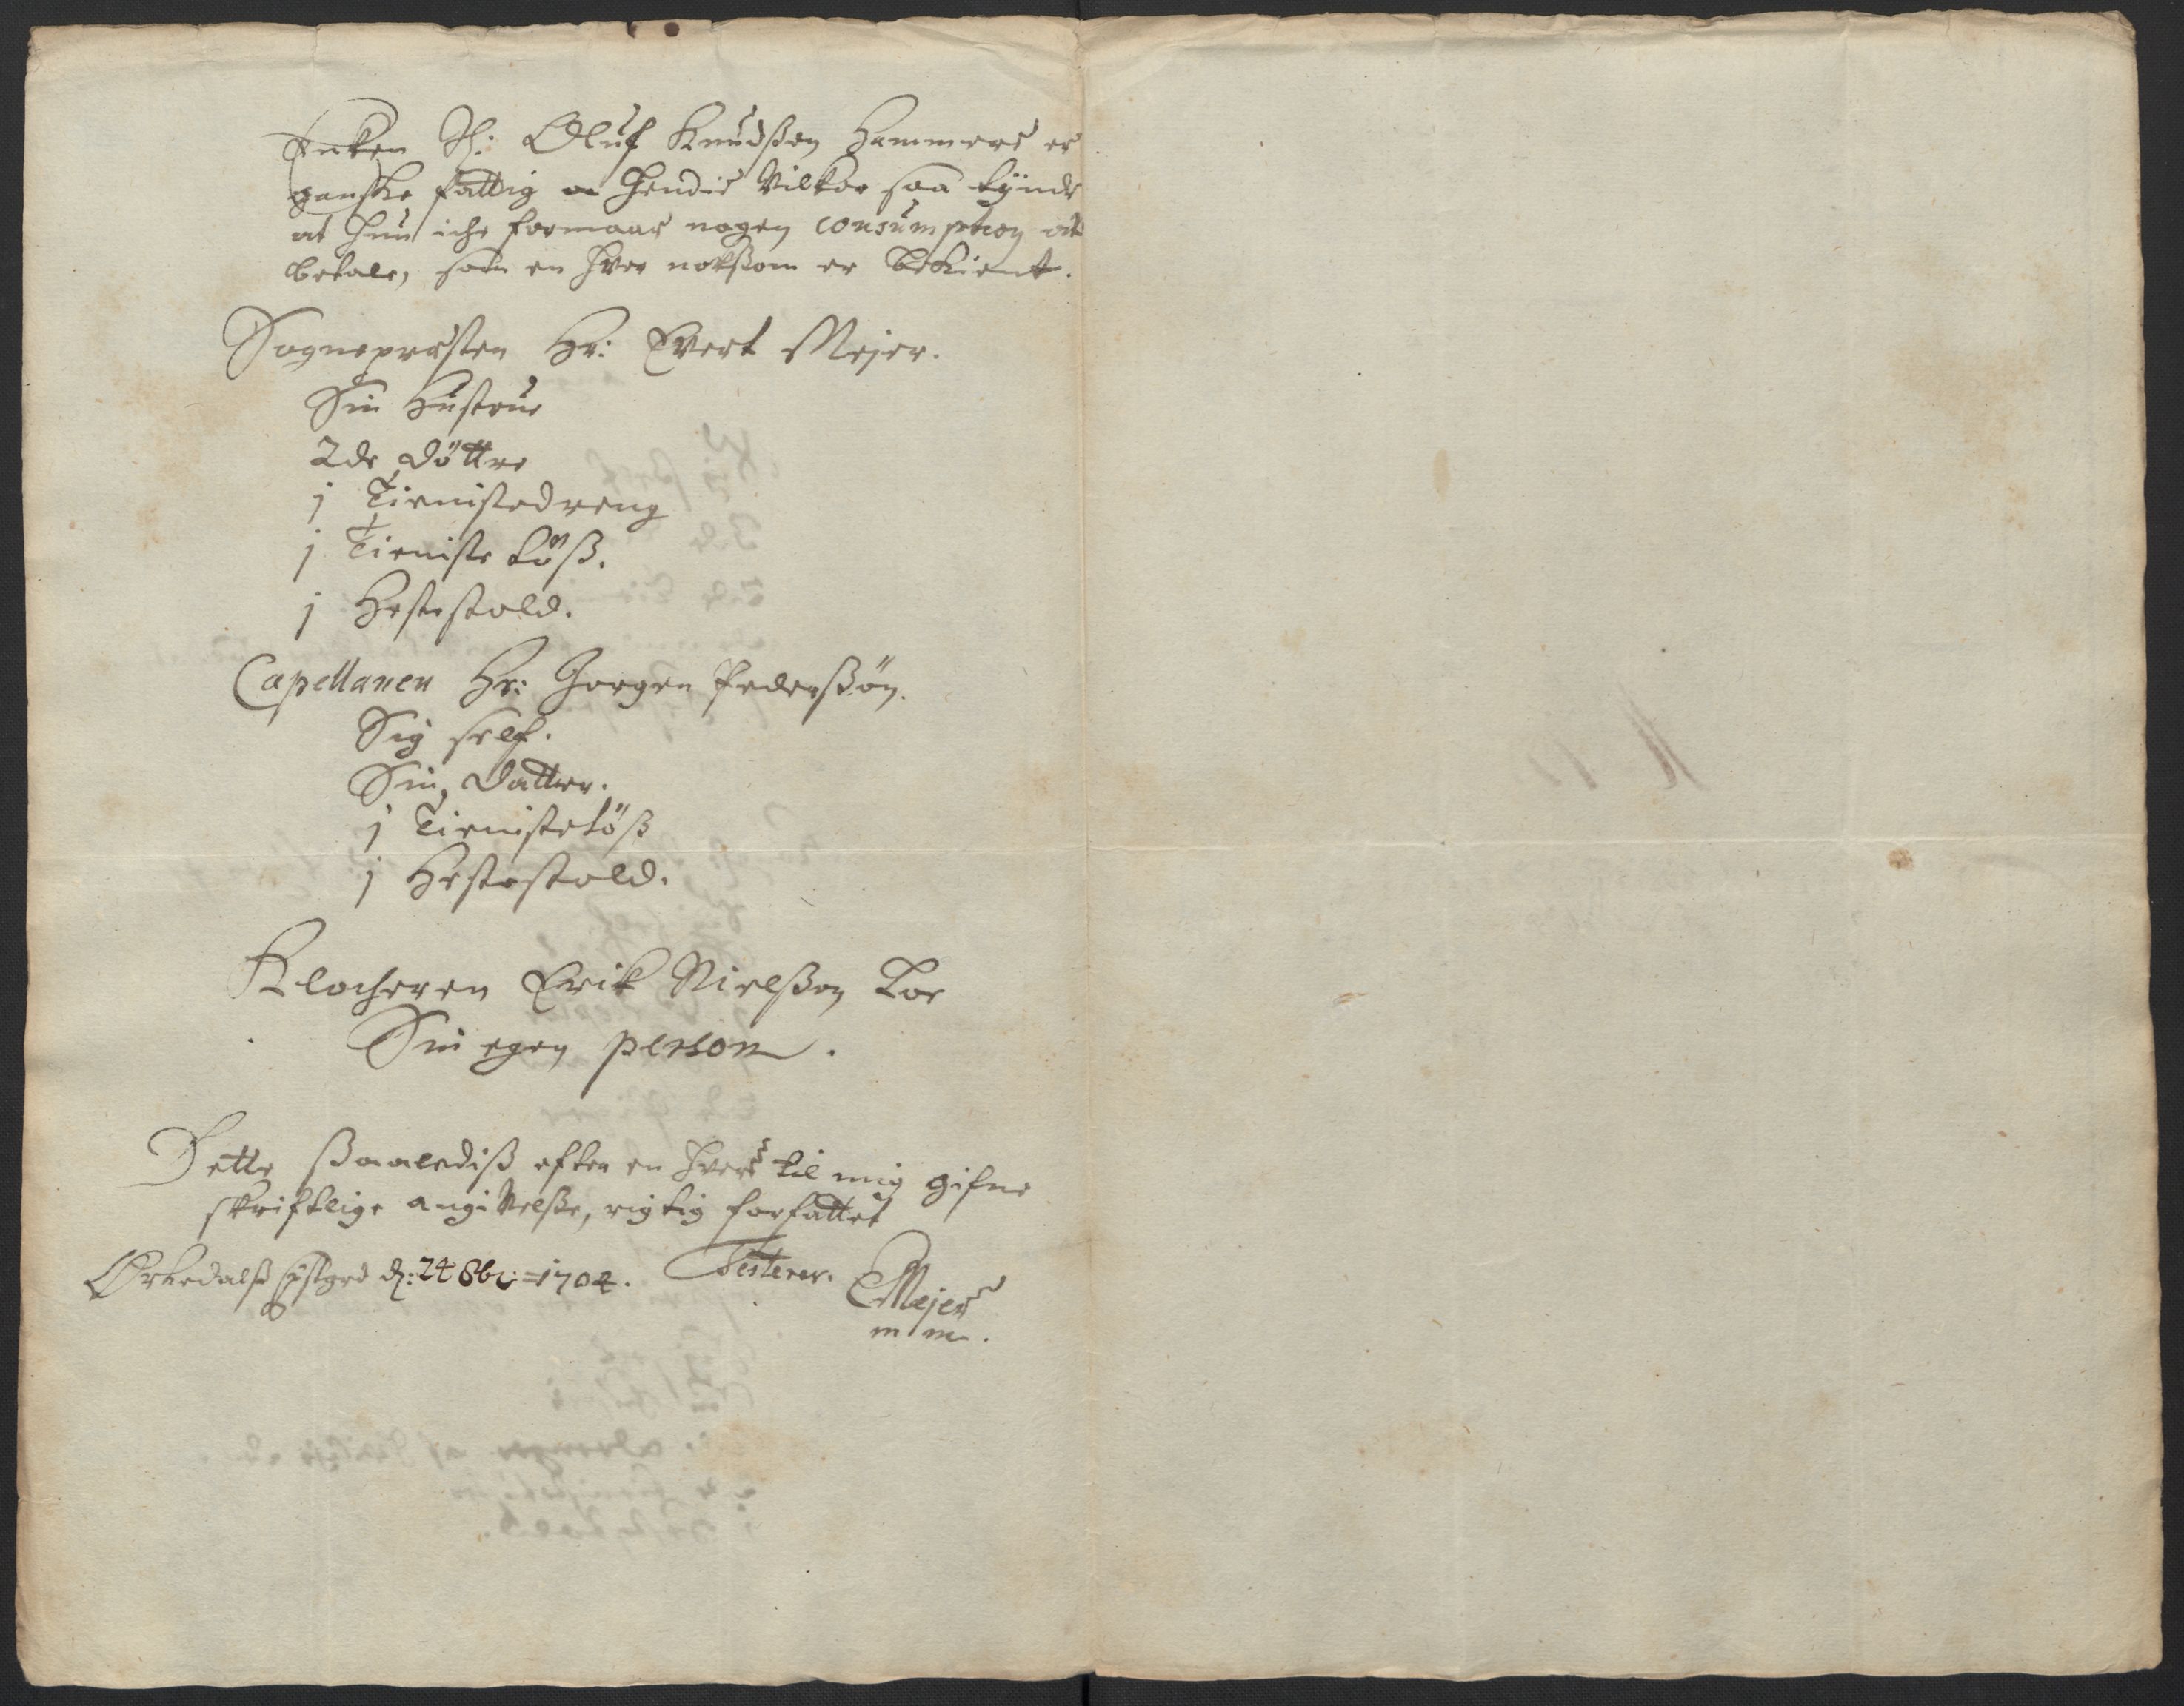 Enken Sl: Oluf Knudßøn Hammers er
ganske fattig og Hendis Vilkor saa tynde
at Hun iche formaar nogen consumption at
betale, som en hver nokßom er bekient.
Sognepresten Hr: Evert Mejer.
Sin Hustrue
2de døttre
j Tienistedreng
j Tieniste töß.
j Hestestald.
Capellanen Hr: Jørgen Pederßön.
Sig self.
Sin Datter.
j Tienistetöß
j Hestestald.
Klocheren Erik Nielßøn for
Sin egen person.
Dette ßaalediß efter en hvers til mig gifne
skriftlige angivelße, rigtig forfattet
Ørkedalß d: 24 8br: 1704. Testerer. EMejer
m m.